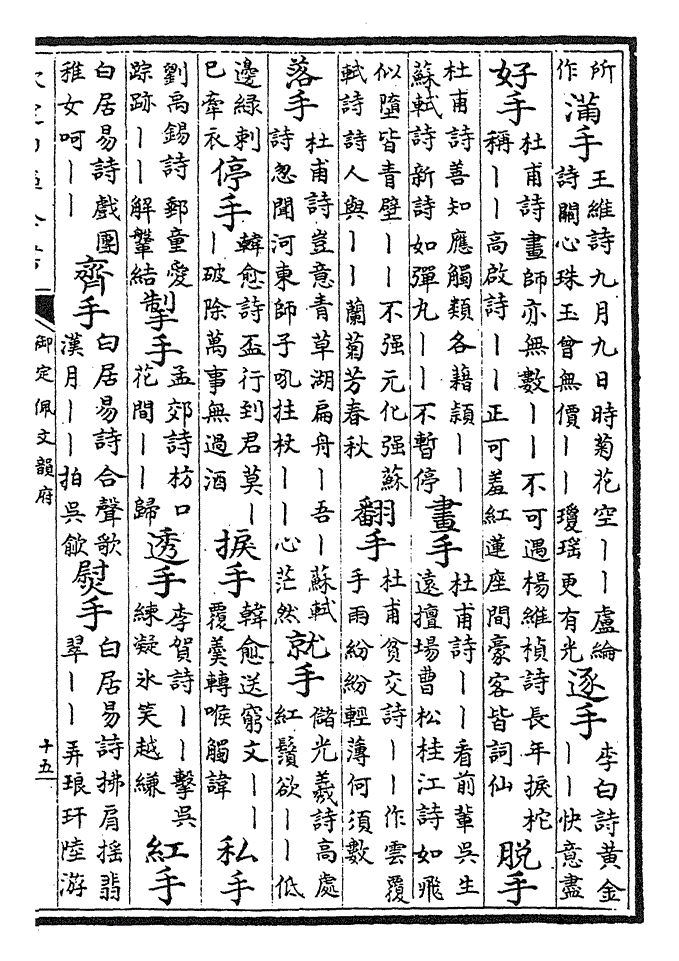 所作滿手王維詩九月九日時菊花空丨丨盧綸詩關心珠玉曾無價丨丨瓊瑶更有光逐手李白詩黃金丨丨快意盡
好手杜甫詩畫師亦無數丨丨不可遇楊維楨詩長年捩柁稱丨丨高啟詩丨丨正可羞紅蓮座間豪客皆詞仙脫手
杜甫詩善知應觸類各藉頴丨丨蘇軾詩新詩如彈丸丨丨不暫停畫手杜甫詩丨丨看前輩吳生遠擅場曹松桂江詩如飛
似墮皆青壁丨丨不强元化强蘇軾詩詩人與丨丨蘭菊芳春秋翻手杜甫貧交詩丨丨作雲覆手雨紛紛輕薄何須數
落手杜甫詩豈意青草湖扁舟丨吾丨蘇軾詩忽聞河東師子吼拄杖丨丨心茫然就手儲光羲詩高處紅鬚欲丨丨低
邊緑刺已牽衣停手韓愈詩盃行到君莫丨丨破除萬事無過酒捩手韓愈送窮文丨丨覆羹轉喉觸諱私手
劉禹錫詩郵童愛踪跡丨丨解鞶結掣手孟郊詩枋口花間丨丨歸透手李賀詩丨丨擊吳練凝氷笑越縑紅手
白居易詩戲團稚女呵丨丨齊手白居易詩合聲歌漢月丨丨拍吳歈熨手白居易詩拂肩揺翡翠丨丨弄琅玕陸游
御定佩文韻府
十五